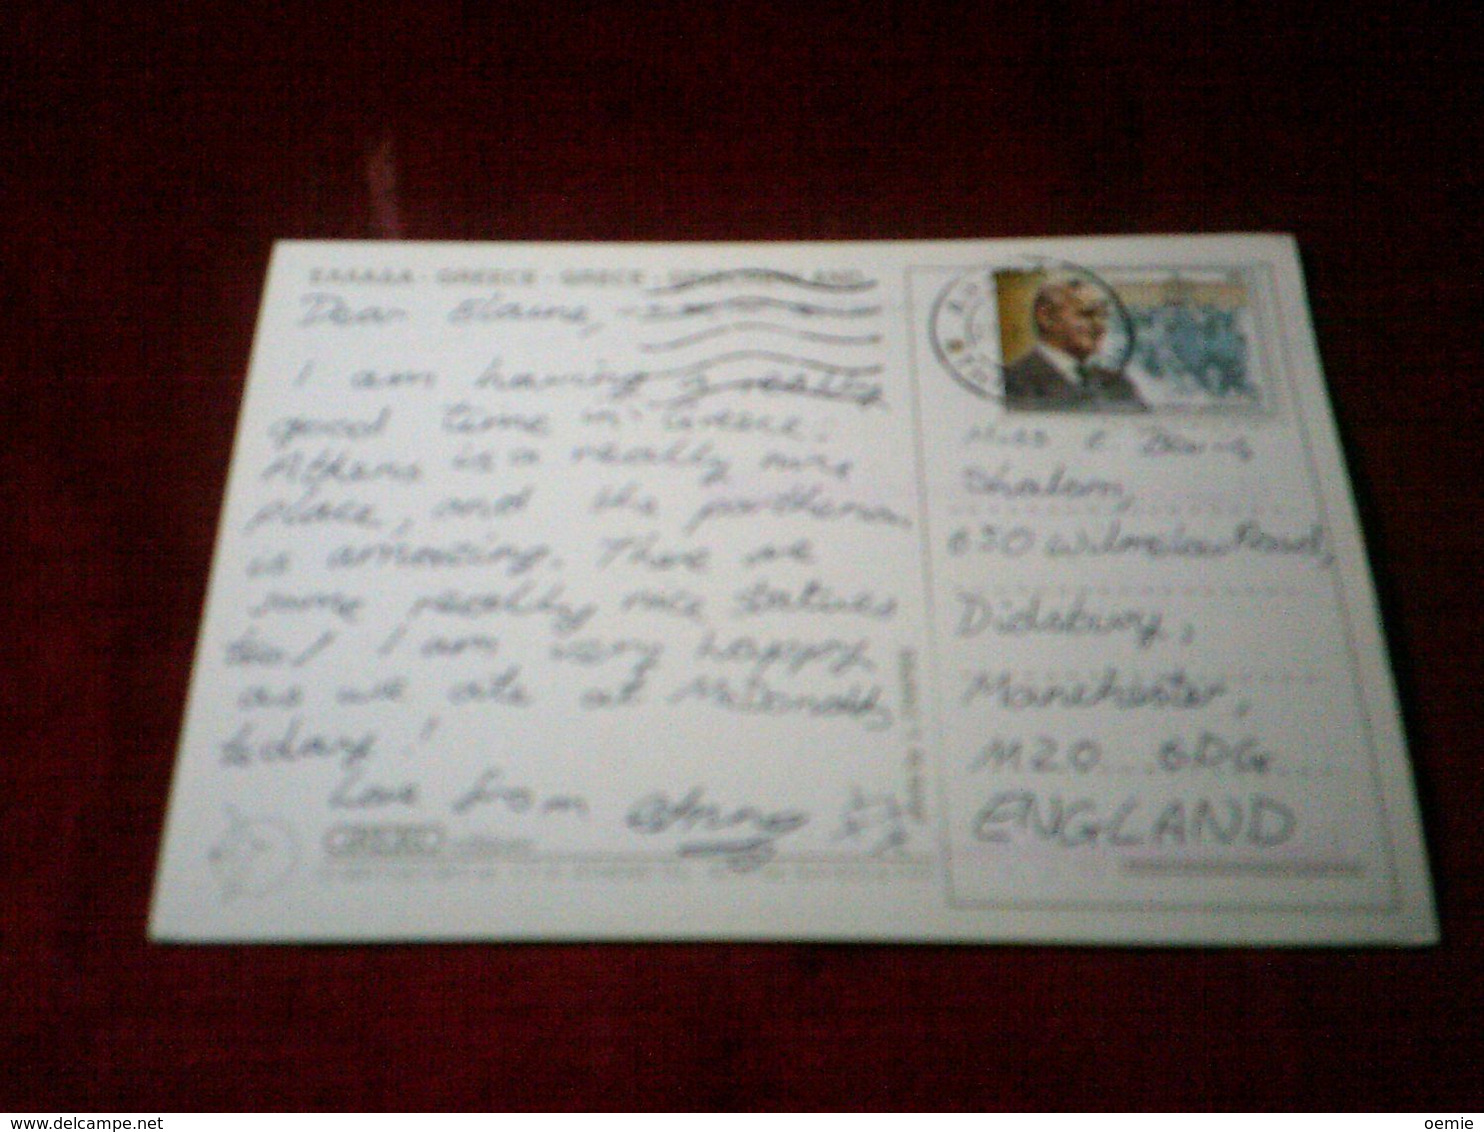 ΕΛΛΑΔΑ - GREECE - GRECE - GRIECHENLAND
Dear Elaine,
I am having a really
good time in Greece.
Athens is a really nice
place, and the parthenon
is amazing. There are
some really nice statues
too! I am very happy
as we ate at McDonalds
today!
Love from
Miss E
Shalom,
630 Wilmslow Road,
Didsbury,
Manchester,
M20 6DG
ENGLAND
delcampe.net
oemie